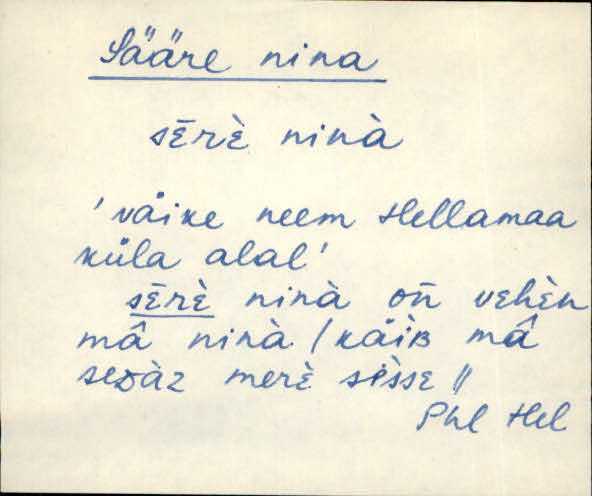 Sääre nina
sērè ninà
'väike neem Hellamaa
küla alal'
sērè ninà on̄ vehèn
mâ ninà / käìʙ mâ
seᴅàz merè sìsse //
Phl Hel